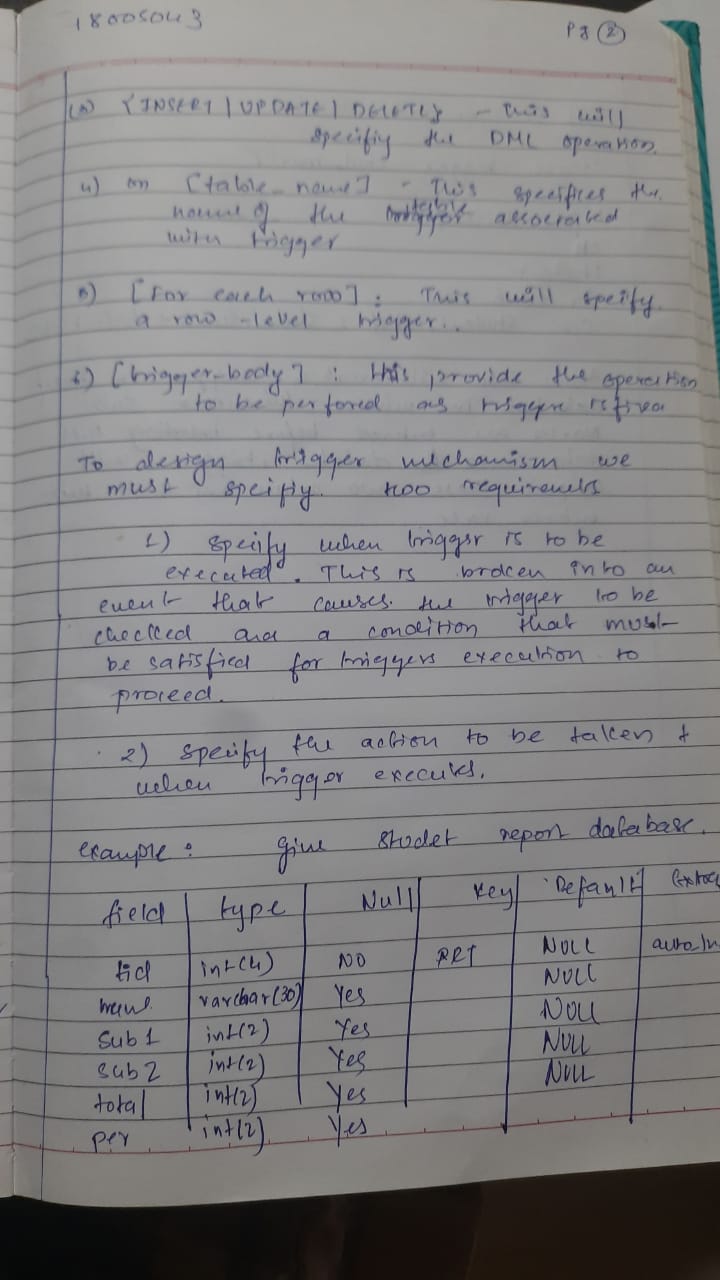 18005043
Pg 2
{INSERT | UPDATE | DELETE} - This will
specifiy the DML operation.
4) on [table_name] - This specifies the
name of the table associated
with trigger
5) [For each row] : This will specify
a row-level trigger..
6) [trigger-body] : this provide the operation
to be perfored as trigger is fired
To design trigger mechanism we
must speifiy two requirements
1) Speiify when trigger is to be
executed. This is broken into an
event that causes the trigger to be
checked and a condition that must
be satisfied for triggers execution to
proceed.
2) Speuify the action to be taken
when trigger executes.
example: give Studet report database.
field type Null Key Default Extra
tid int(4) NO PRI NULL auto_In
name varchar(30) Yes NULL
Sub1 int(2) Yes NULL
Sub2 int(2) Yes NULL
total int(2) Yes NULL
per int(2) Yes